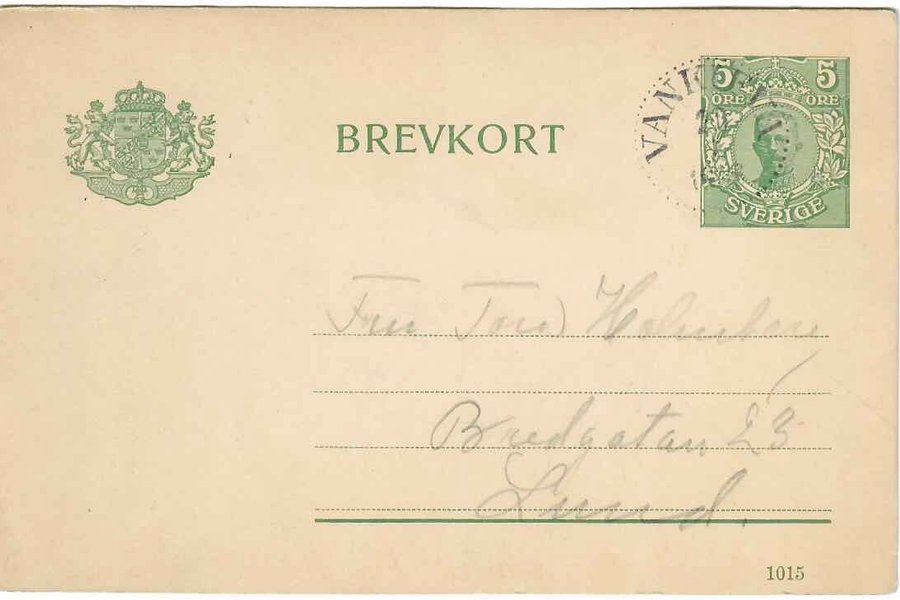 BREVKORT
5 5
ÖRE ÖRE
SVERIGE
VANK
Fru Tord Holmberg
Bredgatan 23
Lund.
1015